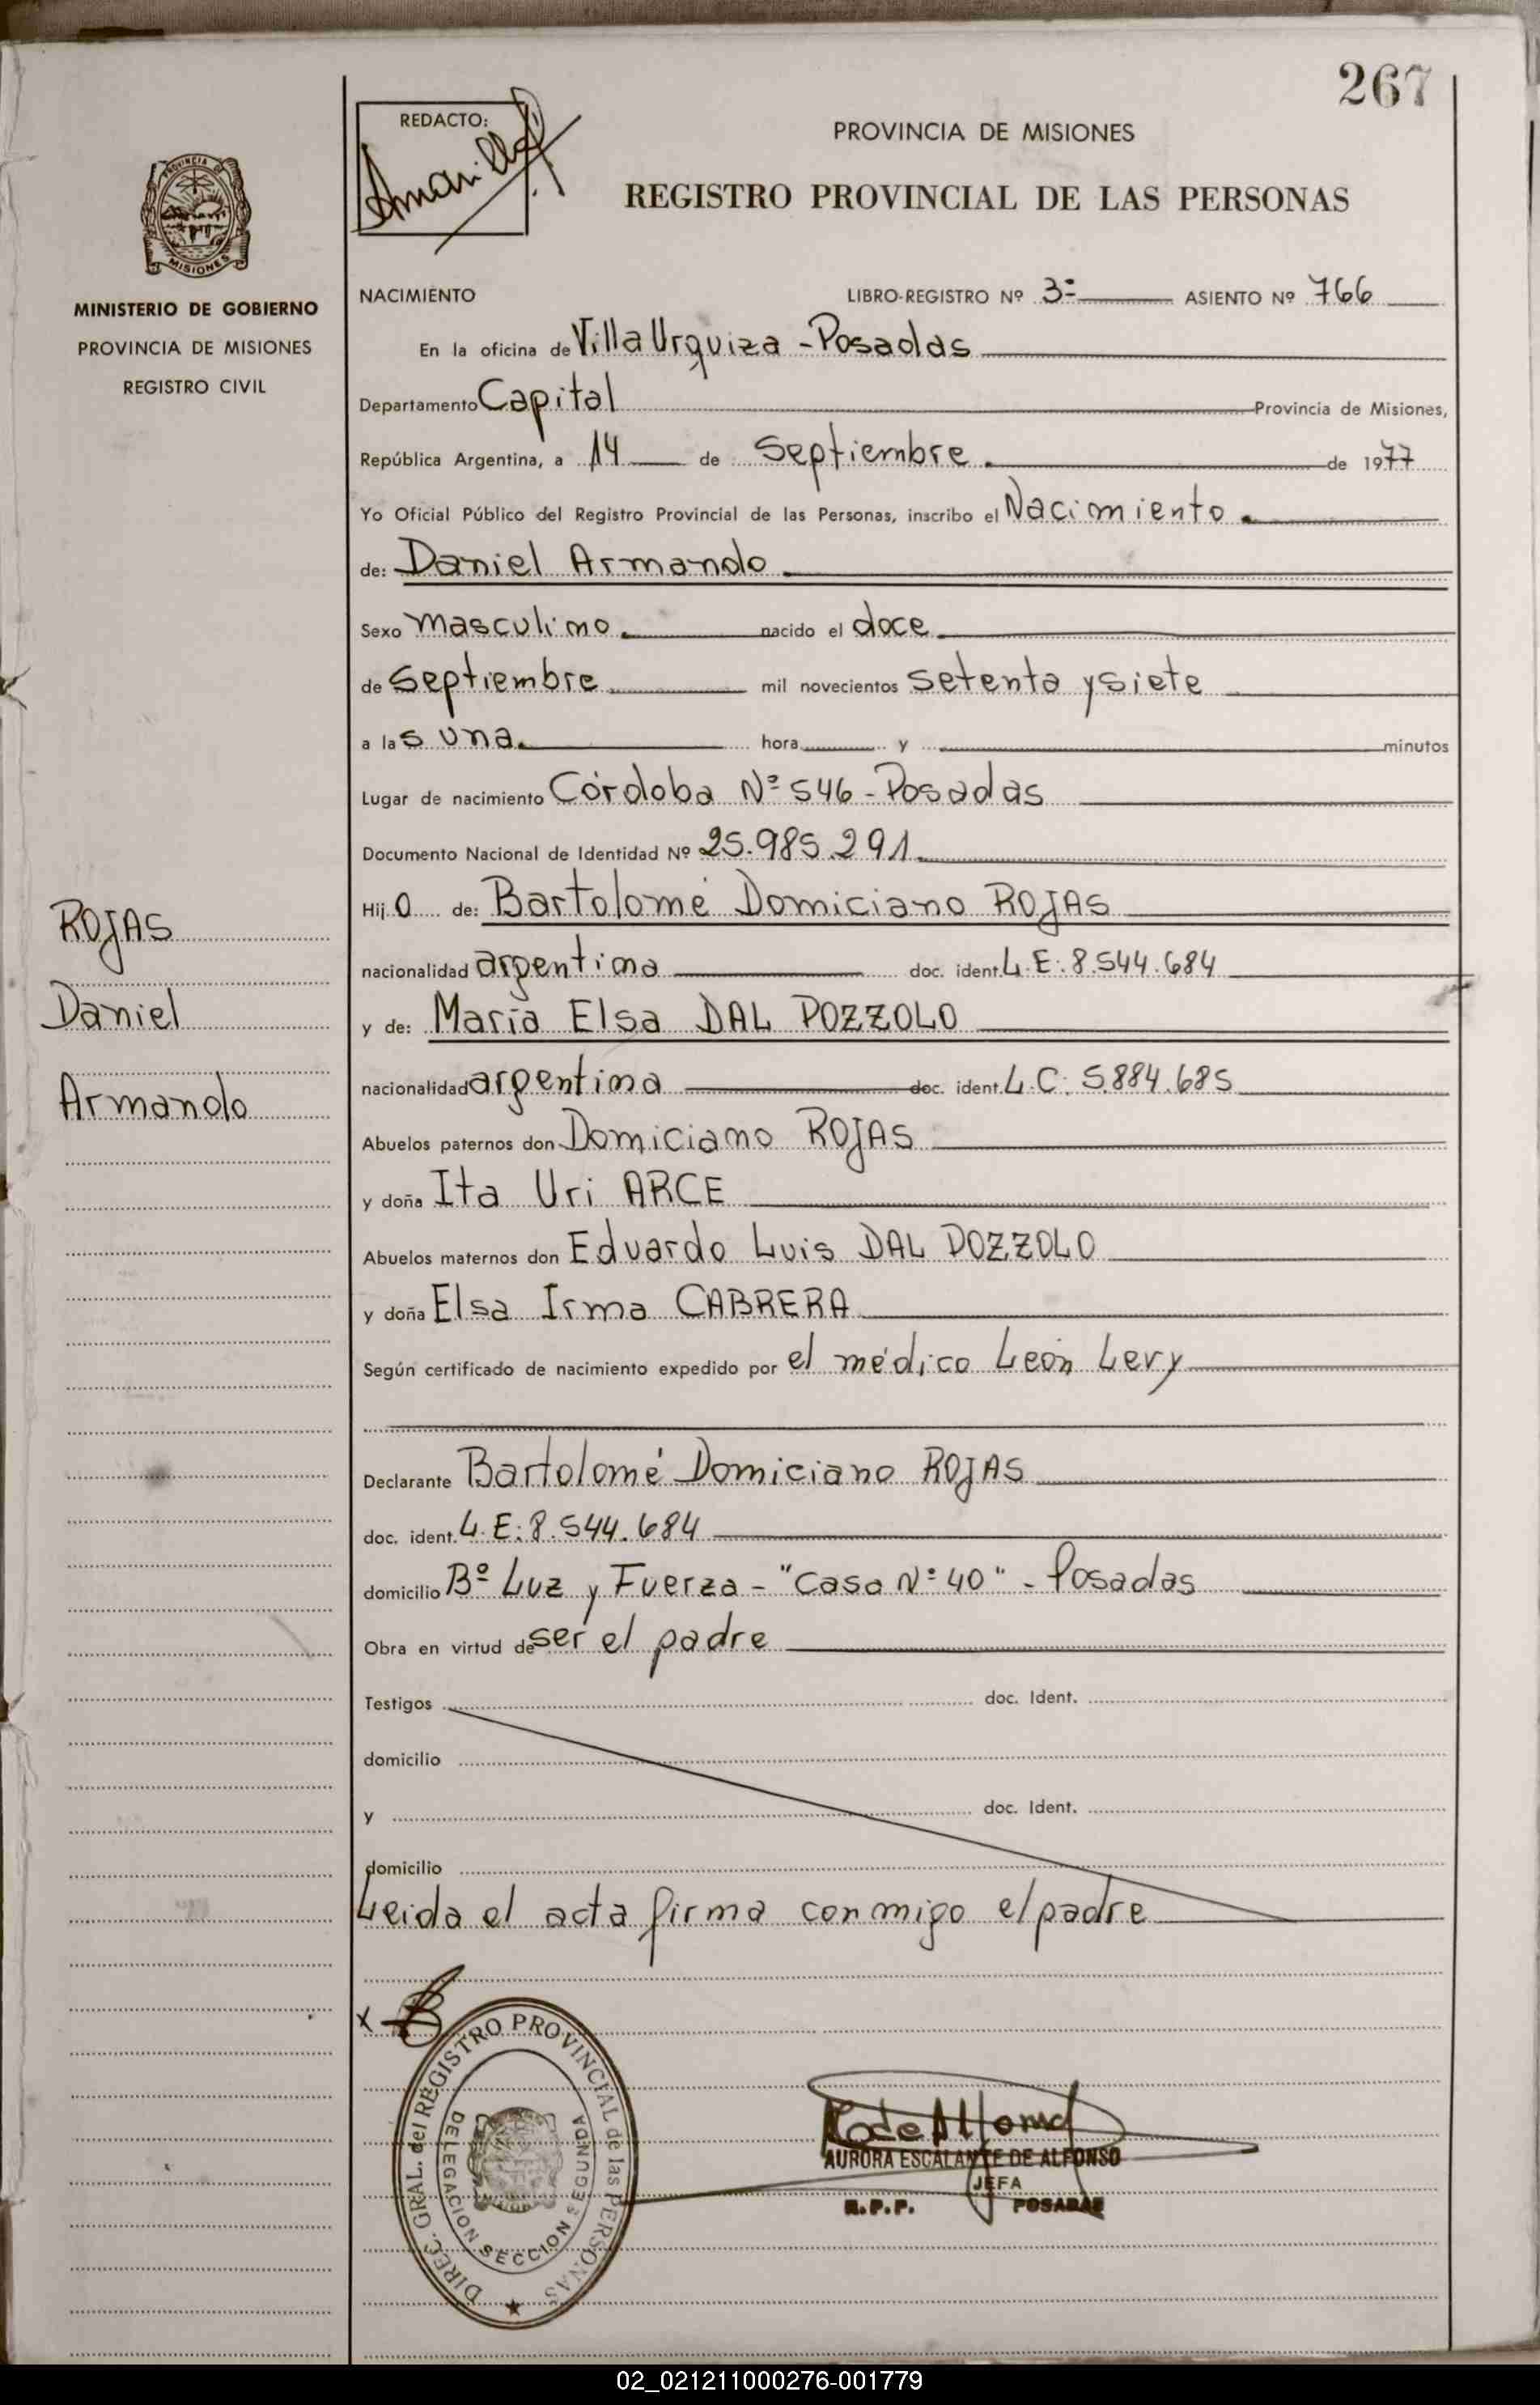 267
REDACTO:
PROVINCIA DE MISIONES
REGISTRO PROVINCIAL DE LAS PERSONAS
MISIONES
MINISTERIO DE GOBIERNO
PROVINCIA DE MISIONES
REGISTRO CIVIL
NACIMIENTO LIBRO-REGISTRO Nº 3º ASIENTO Nº 766
En la oficina de Villa Urquiza - Posadas
Departamento Capital Provincia de Misiones,
República Argentina, a 14 de Septiembre de 1977
Yo Oficial Público del Registro Provincial de las Personas, inscribo el Nacimiento
de: Daniel Armando
Sexo masculino nacido el doce
de Septiembre mil novecientos setenta y siete
a las una hora y minutos
Lugar de nacimiento Córdoba Nº 546 - Posadas
Documento Nacional de Identidad Nº 25.985.291
Hijo de: Bartolomé Domiciano ROJAS
nacionalidad argentina doc. ident. L.E: 8.544.684
y de: María Elsa DAL POZZOLO
nacionalidad argentina doc. ident. L.C: 5.884.685
Abuelos paternos don Domiciano ROJAS
y doña Ita Uri ARCE
Abuelos maternos don Eduardo Luis DAL POZZOLO
y doña Elsa Irma CABRERA
Según certificado de nacimiento expedido por el médico León Levy
Declarante Bartolomé Domiciano ROJAS
doc. ident. L.E: 8.544.684
domicilio Bº Luz y Fuerza - "Casa Nº 40" - Posadas
Obra en virtud de ser el padre
Testigos doc. Ident.
domicilio
y doc. Ident.
domicilio
Leida el acta firma conmigo el padre
ROJAS
Daniel
Armando
x
DIREC. GRAL. del REGISTRO PROVINCIAL de las PERSONAS
DELEGACION SECCION SEGUNDA
AURORA ESCALANTE DE ALFONSO
JEFA
R.P.P. POSADAS
02_021211000276-001779